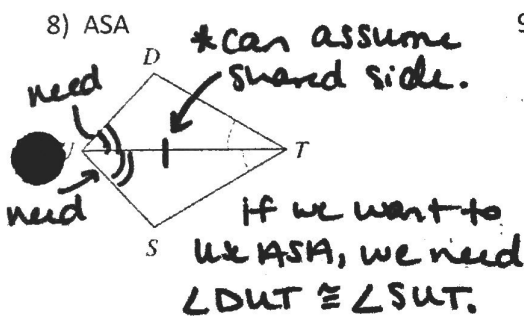 8) ASA
*can assume
shared side.
D
need
U
T
need
S
if we want to
use ASA, we need
∠DUT ≅ ∠SUT.